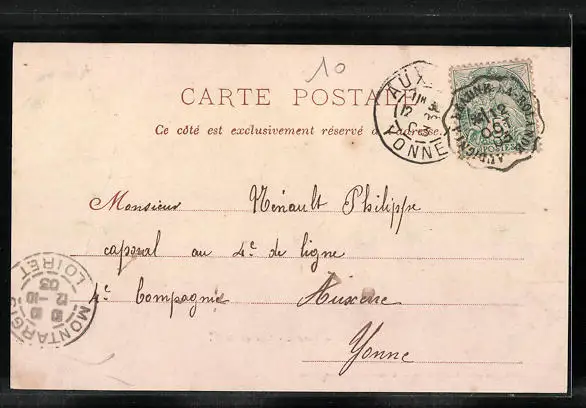 10
CARTE POSTALE
Ce côté est exclusivement réservé à l'adresse.
AUX
12
03
YONNE
Monsieur Ménault Philippe
caporal au 4e de ligne
4e Compagnie Auxerre
Yonne
MONTARGIS
12
03
LOIRET
POSTES